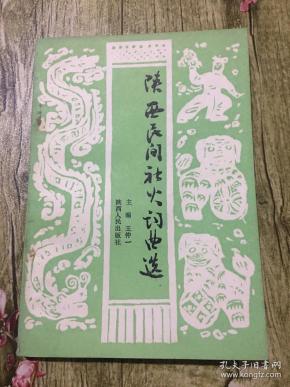 陕西民间社火词曲选
主编 王仲一
陕西人民出版社
孔夫子旧书网